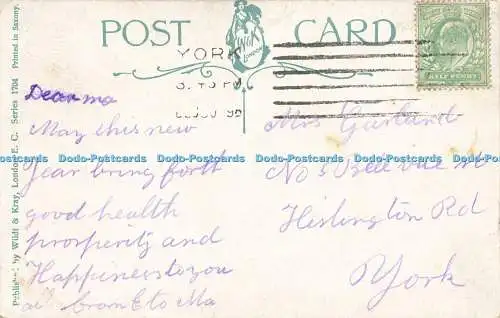 POST CARD
W&K
London
YORK
HALF PENNY
Dear ma
May this new
Year bring forth
good health
prosperity and
Happiness to you
all from E to Ma
Mrs Garland
No 5 Belle vue st
Heslington Rd
York
Published by Wildt & Kray, London, E. C. Series 1704 Printed in Saxony.
Dodo-Postcards Dodo-Postcards Dodo-Postcards Dodo-Postcards Dodo-Postcards